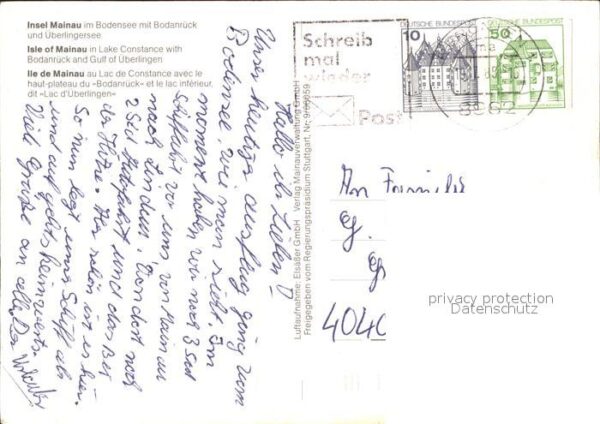 Insel Mainau im Bodensee mit Bodanrück
und Überlingersee
Isle of Mainau in Lake Constance with
Bodanrück and Gulf of Überlingen
Ile de Mainau au Lac de Constance avec le
haut-plateau du «Bodanrück» et le lac inférieur,
dit «Lac d'Überlingen»
Hallo ihr Lieben!
Unser heutiger Ausflug ging zum
Bodensee, wie man sieht. Im
Moment haben wir noch 3 Std
Schiffahrt vor uns von Mainau
nach Lindau. Von dort noch
2 Std und das bei
der Hitze. Hier schön ist es hier.
So nun legt unser Schiff ab
und auf gehts heimwärts.
Viele Grüße an alle
Luftaufnahme: Elsäßer GmbH Verlag Mainauverwaltung GmbH
Freigegeben vom Regierungspräsidium Stuttgart, Nr.
Schreib
mal
wieder
Post
DEUTSCHE BUNDESPOST
10
DEUTSCHE BUNDESPOST
50
An Familie
G.
G
4040
privacy protection
Datenschutz